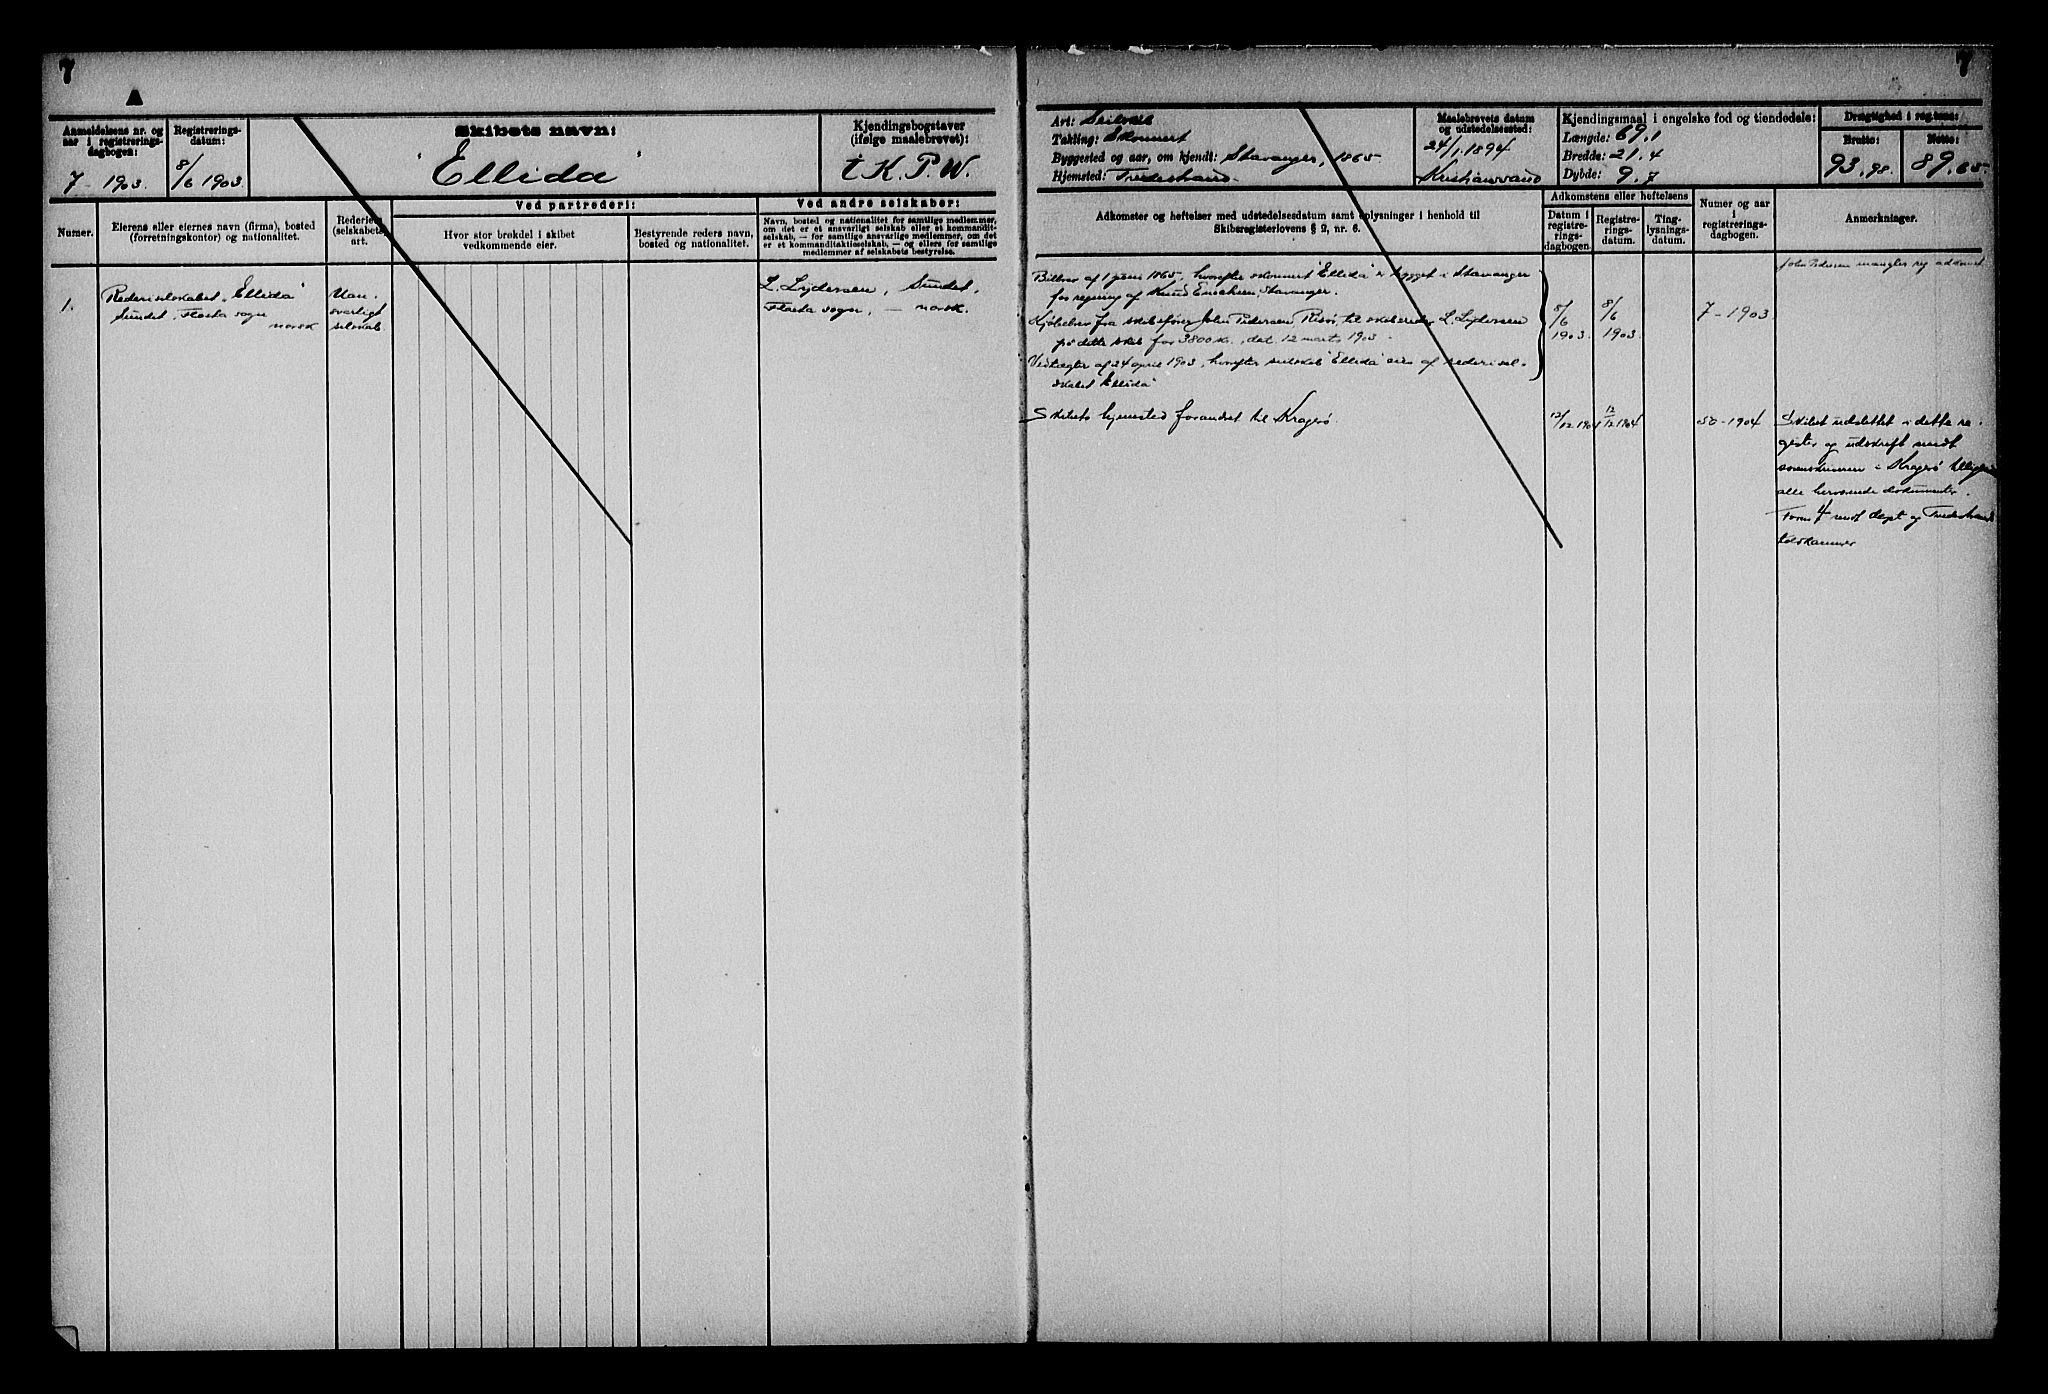 7
Anmeldelsens nr. og
aar i registrerings-
dagbogen:
7 - 1903.
Registrerings-
datum:
8/6 1903
Skibets navn:
"Ellida"
Kjendingsbogstaver
(ifølge maalebrevet):
t. K. P. W.
Numer.
Eierens eller eiernes navn (firma), bosted
(forretningskontor) og nationalitet.
Rederiets
(selskabets)
art.
Ved partrederi:
Hvor stor brøkdel i skibet
vedkommende eier.
Bestyrende reders navn,
bosted og nationalitet.
Ved andre selskaber:
Navn, bosted og nationalitet for samtlige medlemmer,
om det er et ansvarligt selskab eller et kommandit-
selskab, — for samtlige ansvarlige medlemmer, om det
er et kommanditaktieselskab, — og ellers for samtlige
medlemmer af selskabets bestyrelse.
1.
Rederiselskabet "Ellida"
Sundet, Flosta sogn
norsk
Uan-
svarligt
selskab
L. Lydersen, Sundet,
Flosta sogn, — norsk.
7
Art: Seilskib
Takling: Skonnert
Byggested og aar, om kjendt: Stavanger, 1865
Hjemsted: Tvedestrand.
Maalebrevets datum
og udstedelsessted:
24/1. 1894
Kristianssand
Kjendingsmaal i engelske fod og tiendedele:
Længde: 69.1
Bredde: 21.4
Dybde: 9.7
Drægtighed i reg.tons:
Brutto:
93.98.
Netto:
89.65.
Adkomster og heftelser med udstedelsesdatum samt oplysninger i henhold til
Skibsregisterlovens § 2, nr. 6.
Adkomstens eller heftelsens
Datum i
registre-
rings-
dagbogen.
Registre-
rings-
datum.
Ting-
lysnings-
datum.
Numer og aar
i
registrerings-
dagbogen.
Anmerkninger.
Bilbrev af 1 juni 1865, hvorefter skonnert "Ellida" er bygget i Stavanger
for regning af Knud Enochsen, Stavanger.
Kjøbebrev fra skibsfører John Pedersen, Risør, til skibsreder L. Lydersen
på dette skib for 3800 kr., dat. 12 marts 1903.
Vedtægter af 24 april 1903, hvorefter seilskib "Ellida" eies af rederisel-
skabet "Ellida"
8/6
1903.
8/6
1903
7 - 1903
John Pedersen mangler reg adkomst
Skibets hjemsted forandret til Kragerø.
12/12 1904
12/12 1904
50 - 1904
Skibet udslettet i dette re-
gister og udskrift sendt
sorenskriveren i Kragerø tilligemed
alle herværende dokumenter.
Form 4 sendt dept og Tvedestrand
toldkammer